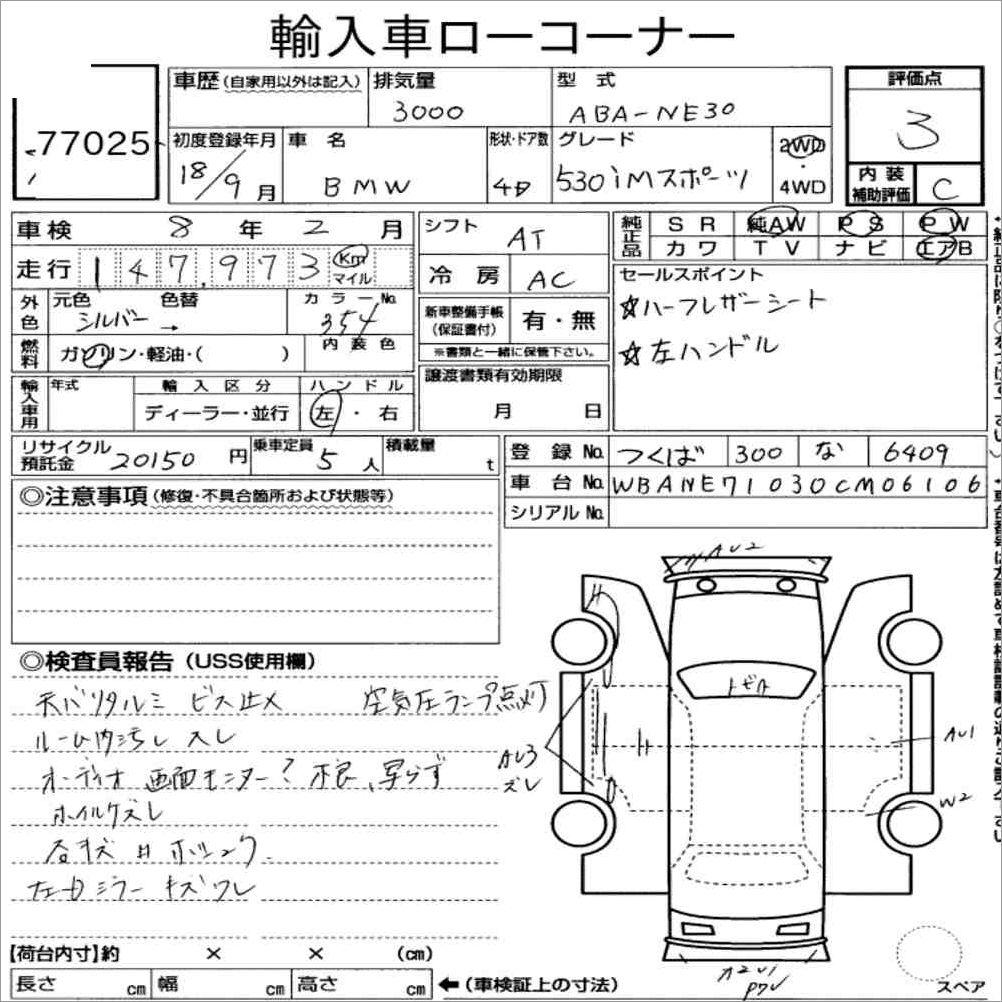 輸入車ローコーナー
77025
車歴 (自家用以外は記入) 排気量 型式 評価点
3000 ABA-NE30 3
初度登録年月 車名 形状・ドア数 グレード 2WD・4WD
18/9月 BMW 4D 530iMスポーツ
内装補助評価 C
車検 8年2月 シフト AT 純正品 SR 純AW PS PW
走行 147,973 Km マイル 冷房 AC カワ TV ナビ エアB
外色 元色 シルバー 色替 → カラーNo. 354
セールスポイント
☆ハーフレザーシート
☆左ハンドル
新車整備手帳(保証書付) 有・無
※書類と一緒に保管下さい。
燃料 ガソリン・軽油・( ) 内装色
譲渡書類有効期限 月 日
輸入車用 年式 輸入区分 ハンドル
ディーラー・並行 左・右
リサイクル預託金 20150円 乗車定員 5人 積載量 t
登録No. つくば 300 な 6409
車台No. WBANE71030CM06106
シリアルNo.
◎注意事項 (修復・不具合箇所および状態等)
◎検査員報告 (USS使用欄)
天バリタルミ ビス止メ 空気圧ランプ点灯
ルーム内汚し スレ
オーディオ 画面モニター? 不良、写らず
ホイルクズレ
左右ミラー キズワレ
AU2
トビA
AU3
ズレ
AU1
W2
A2U1
【荷台内寸】約 × × (cm)
長さ cm 幅 cm 高さ cm ←(車検証上の寸法)
スペア